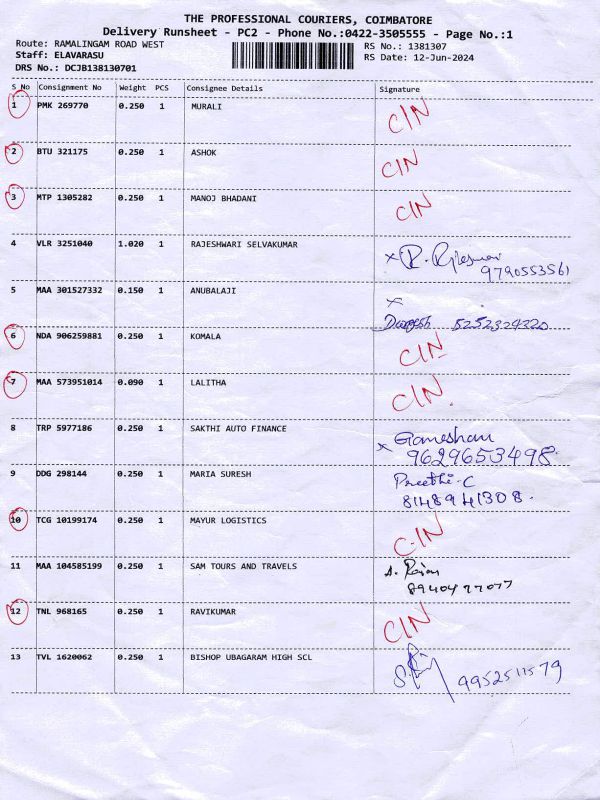 THE PROFESSIONAL COURIERS, COIMBATORE
Delivery Runsheet - PC2 - Phone No.:0422-3505555 - Page No.:1
Route: RAMALINGAM ROAD WEST
Staff: ELAVARASU
DRS No.: DCJB138130701
RS No.: 1381307
RS Date: 12-Jun-2024
S No Consignment No Weight PCS Consignee Details Signature
1 PMK 269770 0.250 1 MURALI C/N
2 BTU 321175 0.250 1 ASHOK C/N
3 MTP 1305282 0.250 1 MANOJ BHADANI C/N
4 VLR 3251040 1.020 1 RAJESHWARI SELVAKUMAR x R.
9790553561
5 MAA 301527332 0.150 1 ANUBALAJI x
Durgesh 5252324320
6 NDA 906259881 0.250 1 KOMALA C/N
7 MAA 573951014 0.090 1 LALITHA C/N.
8 TRP 5977186 0.250 1 SAKTHI AUTO FINANCE x Gameshan
9629653498.
9 DDG 298144 0.250 1 MARIA SURESH Preethi.C
8148941308.
10 TCG 10199174 0.250 1 MAYUR LOGISTICS C/N
11 MAA 104585199 0.250 1 SAM TOURS AND TRAVELS A. Rajan
8940477077
12 TNL 968165 0.250 1 RAVIKUMAR C/N
13 TVL 1620062 0.250 1 BISHOP UBAGARAM HIGH SCL 9952511579